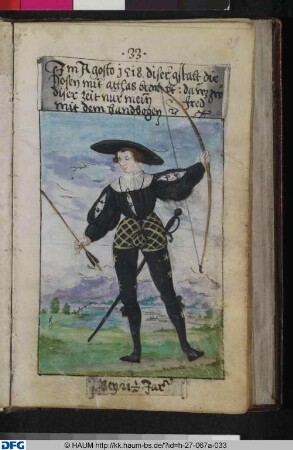 · 33 ·
Im Agosto 1518 diser gstalt die
hosen mit atlas
diser zeit nur mein fred
mit dem handbogen
Bey 21½ Jar
DFG
© HAUM http://kk.haum-bs.de/?id=h-27-067a-033